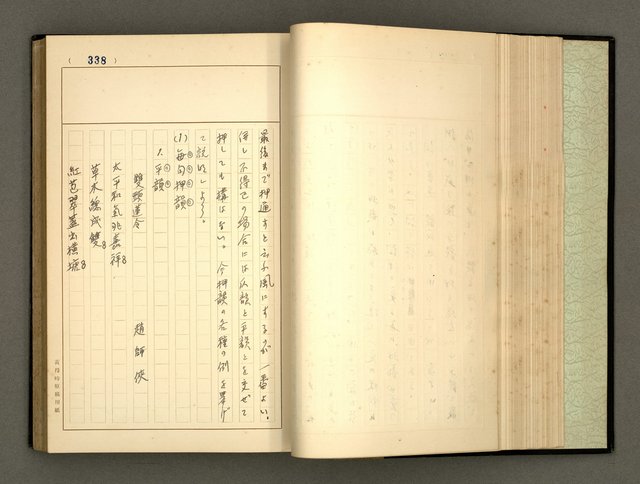 (338)
最後まで押通すと云ふ風にするが一番よい。
併し不得已の場合には仄韻と平韻とを交ぜて
押しても構はない。今押韻の各種の例を挙げ
て説明しよう。
(1) 毎句押韻
1. 平韻
雙頭蓮令 趙師俠
太平和氣兆嘉祥
草木總成雙
紅苞翠蓋出橫塘
黃得時原稿用紙